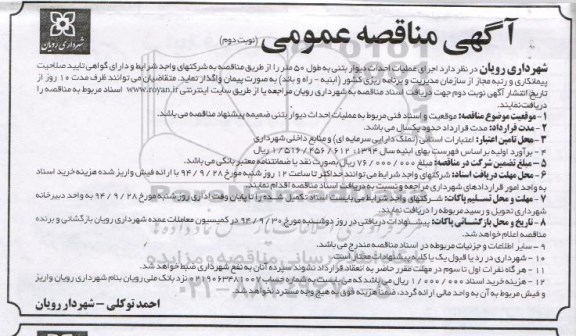 آگهی مناقصه عمومی (نوبت دوم)
شهرداری رویان
شهرداری رویان در نظر دارد اجرای عملیات احداث دیوار بتنی به طول ۵۰ متر را از طریق مناقصه به شرکتهای واجد شرایط و دارای گواهی تایید صلاحیت
پیمانکاری و رتبه مجاز از سازمان مدیریت و برنامه ریزی کشور (ابنیه - راه و باند) به صورت پیمان واگذار نماید. متقاضیان می توانند ظرف مدت ۱۰ روز از
تاریخ انتشار آگهی نوبت دوم جهت دریافت اسناد مناقصه به شهرداری رویان مراجعه یا از طریق سایت اینترنتی www.royan.ir اسناد مربوط به مناقصه را
دریافت نمایند.
۱- موقعیت موضوع مناقصه: موقعیت و اسناد فنی مربوط به عملیات احداث دیوار بتنی ضمیمه پیشنهاد مناقصه می باشد.
۲- مدت قرارداد: مدت قرارداد حدود یکسال می باشد.
۳- محل تامین اعتبار: اعتبارات استانی (تملک دارایی سرمایه ای) و منابع داخلی شهرداری
۴- برآورد اولیه بر اساس فهرست بهای ابنیه سال ۱۳۹۴ ۱/۵۲۶/۲۵۶/۶۱۲ ریال
۵- مبلغ تضمین شرکت در مناقصه: مبلغ ۷۶/۰۰۰/۰۰۰ ریال بصورت نقد یا ضمانتنامه معتبر بانکی می باشد.
۶- محل مهلت دریافت اسناد: شرکتهای واجد شرایط می توانند حداکثر تا ساعت ۱۲ روز شنبه مورخ ۹۴/۹/۲۸ با ارائه فیش واریز شده هزینه خرید اسناد
به واحد امور قراردادهای شهرداری مراجعه و نسبت به دریافت اسناد مناقصه اقدام نمایند.
۷- مهلت و محل تسلیم پاکات: شرکتهای واجد شرایط می بایست اسناد تکمیل شده را تا پایان وقت اداری روز شنبه مورخ ۹۴/۹/۲۸ به واحد دبیرخانه
شهرداری تحویل و رسید مربوطه را دریافت نمایند.
۸- تاریخ و محل بازگشائی پاکات: پیشنهادات دریافتی در روز دوشنبه مورخ ۹۴/۹/۳۰ در کمیسیون معاملات عمده شهرداری رویان بازگشائی و برنده
مناقصه اعلام خواهد شد.
۹- سایر اطلاعات و جزئیات مربوطه در اسناد مناقصه مندرج می باشد.
۱۰- شهرداری در رد یا قبول یک یا کلیه پیشنهادات مختار است.
۱۱- هر گاه نفرات اول تا سوم در مهلت مقرر حاضر به انعقاد قرارداد نشوند سپرده آنان به نفع شهرداری ضبط خواهد شد.
۱۲- هزینه خرید اسناد ۱/۰۰۰/۰۰۰ ریال می باشد که می بایست به شماره حساب نزد بانک ملی رویان بنام شهرداری رویان واریز
و فیش مربوط به آن به واحد مالی ارائه گردد. ضمنا هزینه فوق به هیچ وجه مسترد نخواهد شد.
احمد توکلی - شهردار رویان